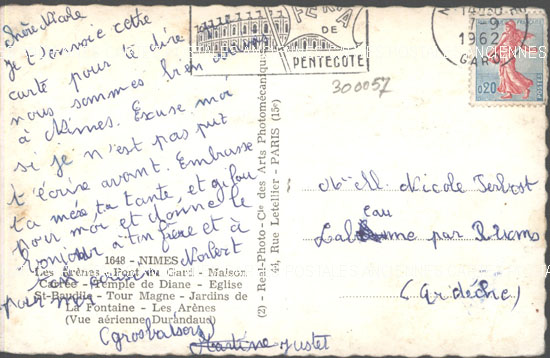 Chère Nicole
je t'envoie cette
carte pour te dire
nous sommes bien
à Nîmes. Excuse moi
si je n'est pas put
t'écrire avant. Embrasse
ta mère, ta tante, et
pour moi et donne le
bonjour à ton frère et à
Norbert
pour moi
(grosbaisers)
Martine Justet
FERIA
DE
PENTECOTE
14H30
7-9
1962
GARD
0,20
300057
Melle Nicole
par
(Ardèche)
1648 - NIMES
Les Arènes - Pont du Gard - Maison
Carrée - Temple de Diane - Eglise
St-Baudile - Tour Magne - Jardins de
La Fontaine - Les Arènes
(Vue aérienne Durandaud)
(2) - Real-Photo - Cie des Arts Photomécaniques
44, Rue Letellier - PARIS (15e)